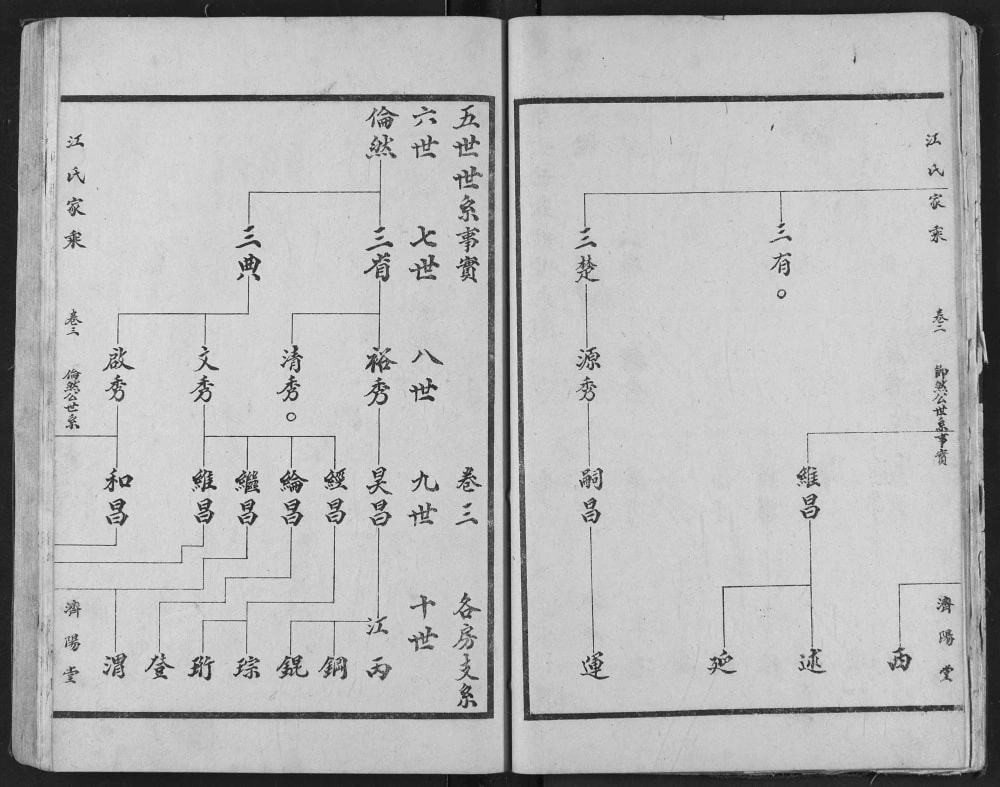 江氏家乘
卷二
節然公世系事實
濟陽堂
三有。
三楚
源秀
維昌
嗣昌
丙
述
延
運
五世世系事實
卷三
各房支系
六世
七世
八世
九世
十世
倫然
三省
三典
裕秀
清秀。
文秀
啟秀
昊昌
經昌
綸昌
繼昌
維昌
和昌
江丙
鋼
錕
琮
珩
登
渭
江氏家乘
卷三
倫然公世系
濟陽堂